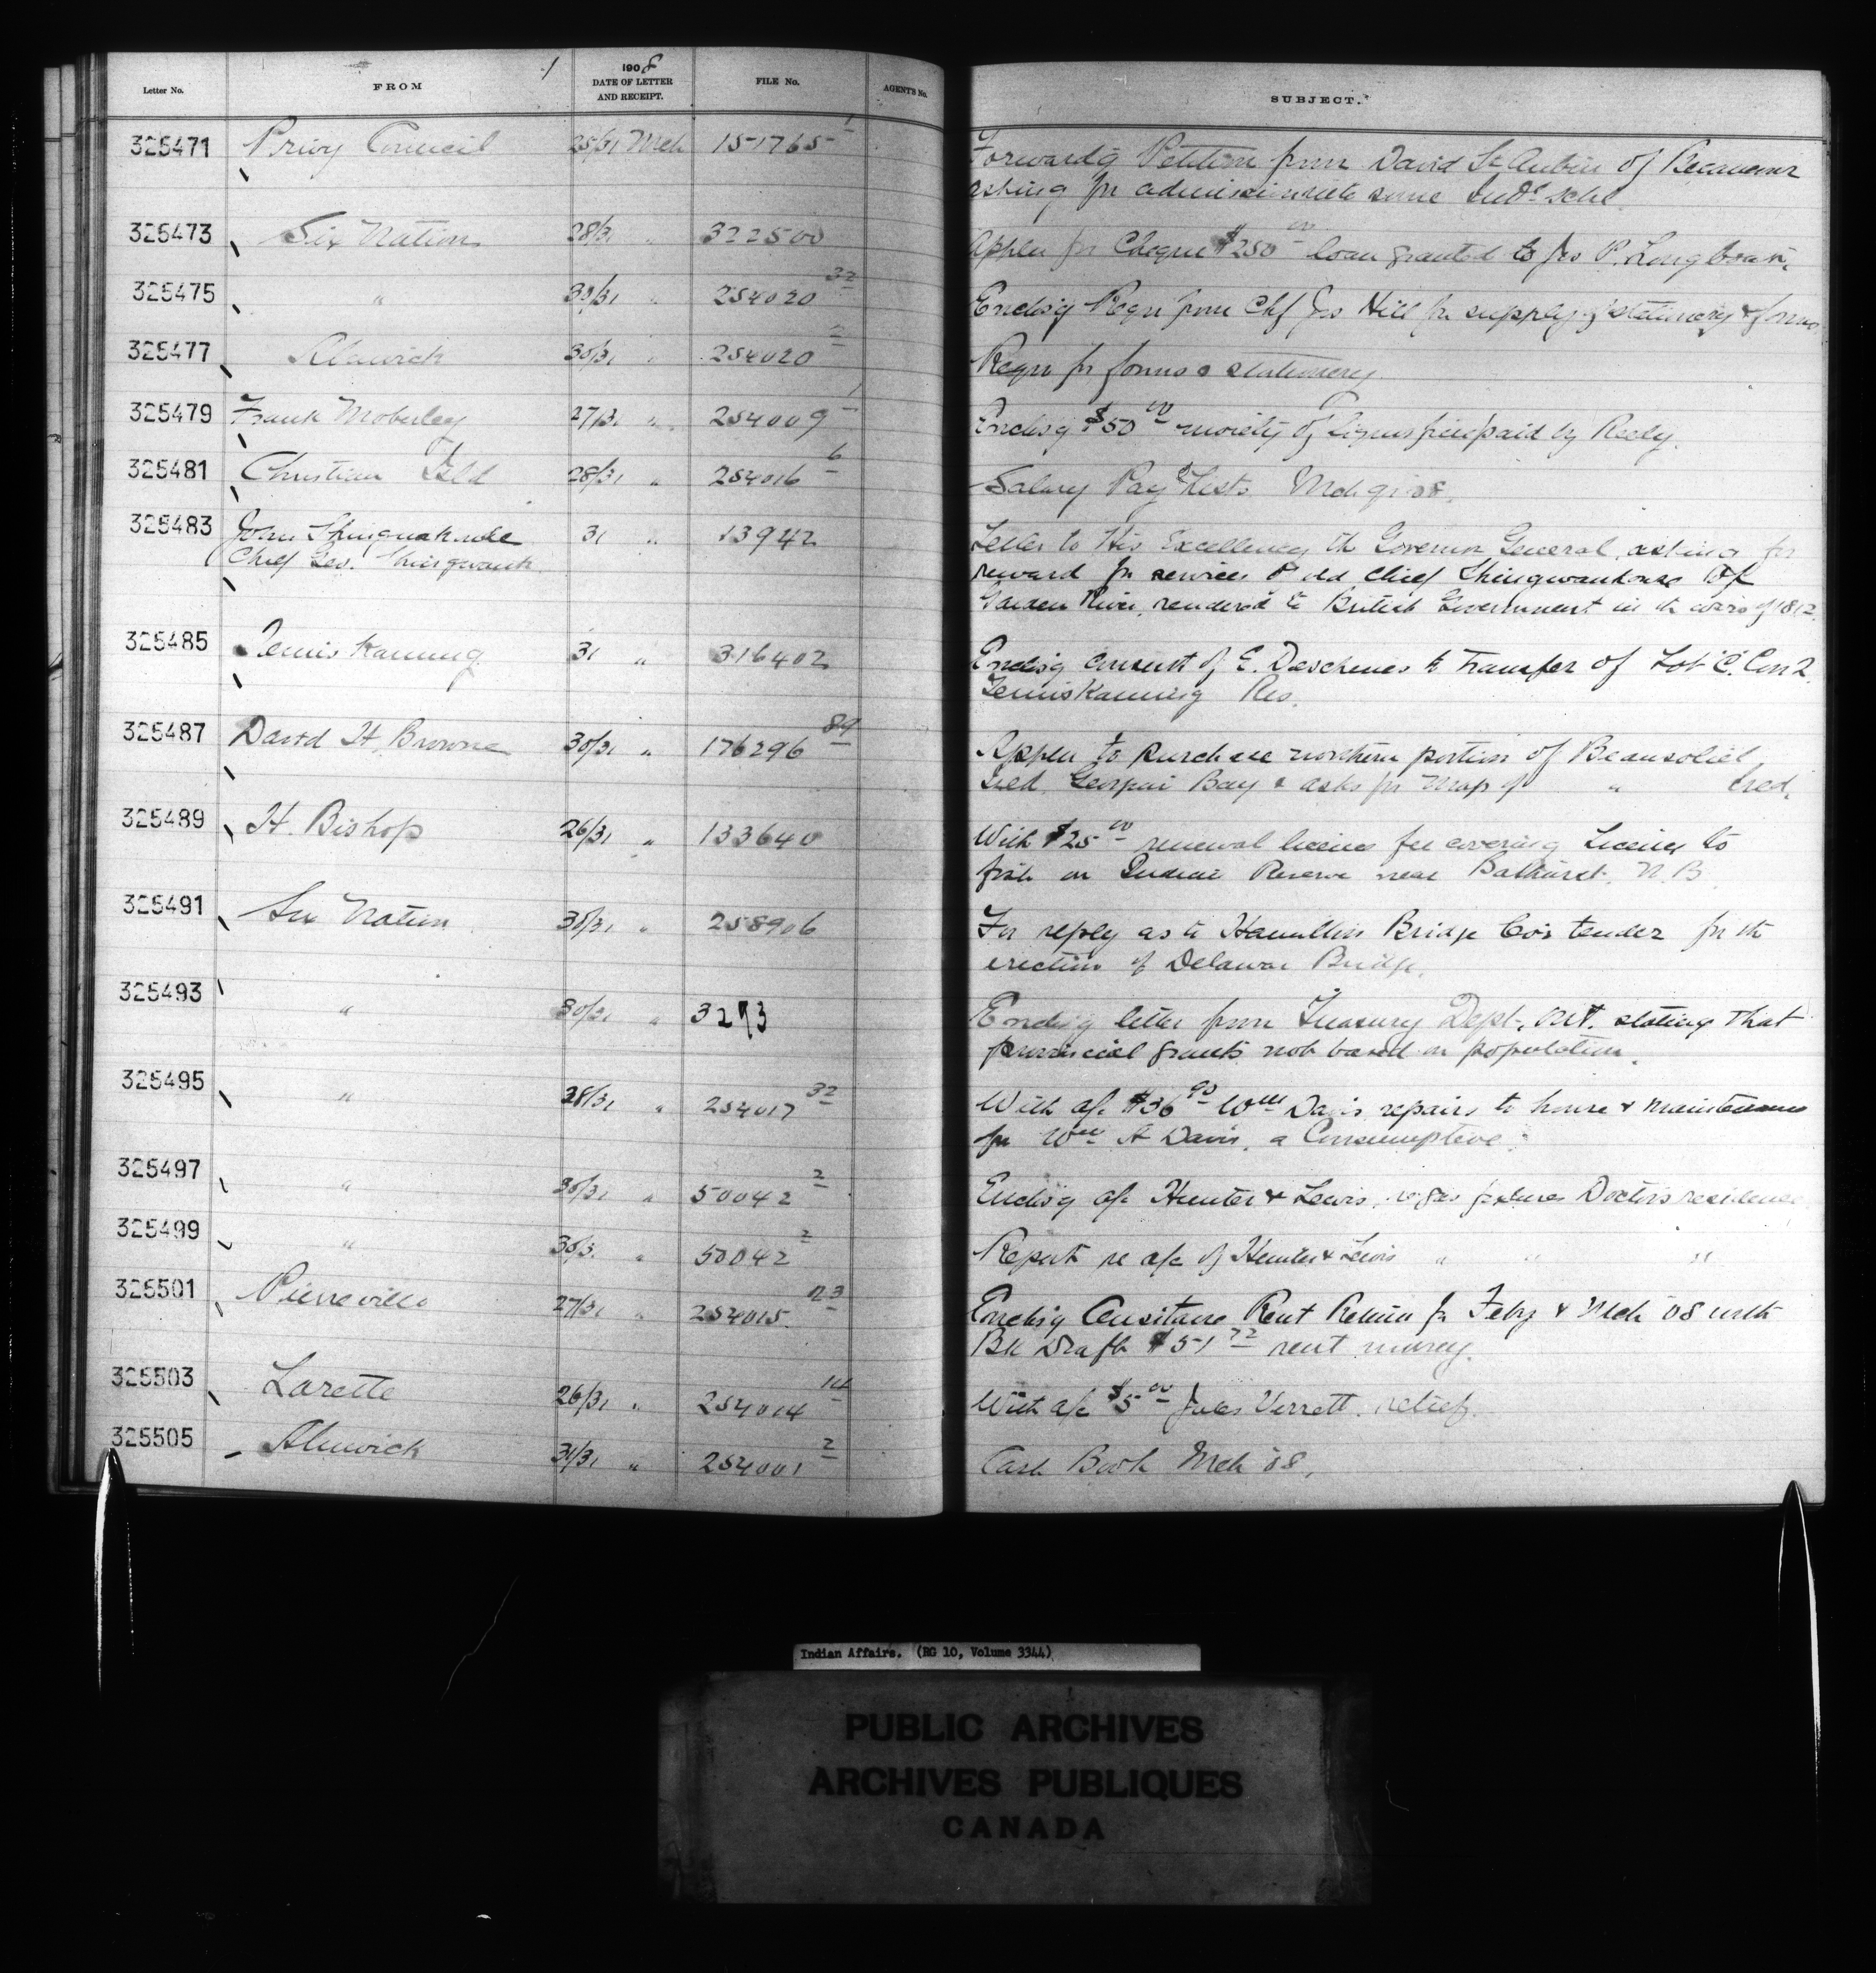 Letter No. FROM 1908 DATE OF LETTER AND RECEIPT. FILE No. AGENT'S No. SUBJECT.
325471 Privy Council 25/31 Mch 151765-1 Forwardg Petition from David St Aubin of
asking for admission into some Indn schl
325473 Six Nation 28/31 " 322500 Applen for Cheque $250 00 loan granted to Jno P. Longboat.
325475 " 30/31 " 254020 32 Enclsig Reqn from Chf Jos Hill for supply of stationery & forms
325477 Alnwick 30/31 " 254020 2 Reqn for forms & stationery
325479 Frank Moberley 27/31 " 254009 1 Enclsig $50 00 moiety of fine paid by
325481 Christian Isld 28/31 " 254016 6 Salary Pay Lists Mch qr 08.
325483 John 31 " 13942 Letter to His Excellency the Governor General, asking for
Chief Geo. Shingwauk reward for services of old Chief of
Garden River, rendered to British Government in the wars of 1812.
325485 Temiskaming 31 " 316402 Enclsig consent of E. Deschenes to transfer of Lot "C" Con 2.
Temiskaming Res.
325487 David H. Browne 30/31 " 176296 89 Applen to purchase northern portion of Beausoliel
Isld, Georgian Bay & asks for map of " Isld.
325489 H. Bishop 26/31 " 133640 With $25 00 renewal license fee covering License to
fish on Indian Reserve near Bathurst. N.B.
325491 Six Nation 30/31 " 258906 For reply as to Hamilton Bridge Co's tender for the
erection of Delaware Bridge.
325493 " 30/31 " 3273 Enclsig letter from Treasury Dept., Ont. stating that
provincial grants not based on population.
325495 " 28/31 " 254017 32 With a/c $36 90 Wm Davis repairs to house & maintenance
for Wm A Davis, a Consumptive.
325497 " 30/31 " 50042 2 Enclsig a/c Hunter & Lewis, re gas fixtures Doctor's residence
325499 " 30/3 " 50042 2 Report re a/c of Hunter & Lewis " " "
325501 Pierreville 27/31 " 254015 23 Enclsig Censitaire Rent Return for Feby & Mch 08 with
Bk Draft $51 72 rent money.
325503 Lorette 26/31 " 254014 14 With a/c $5 00 Jules Verrett. relief.
325505 Alnwick 31/31 " 254001 2 Cash Book Mch 08.
Indian Affairs. (RG 10, Volume 3344)
PUBLIC ARCHIVES
ARCHIVES PUBLIQUES
CANADA